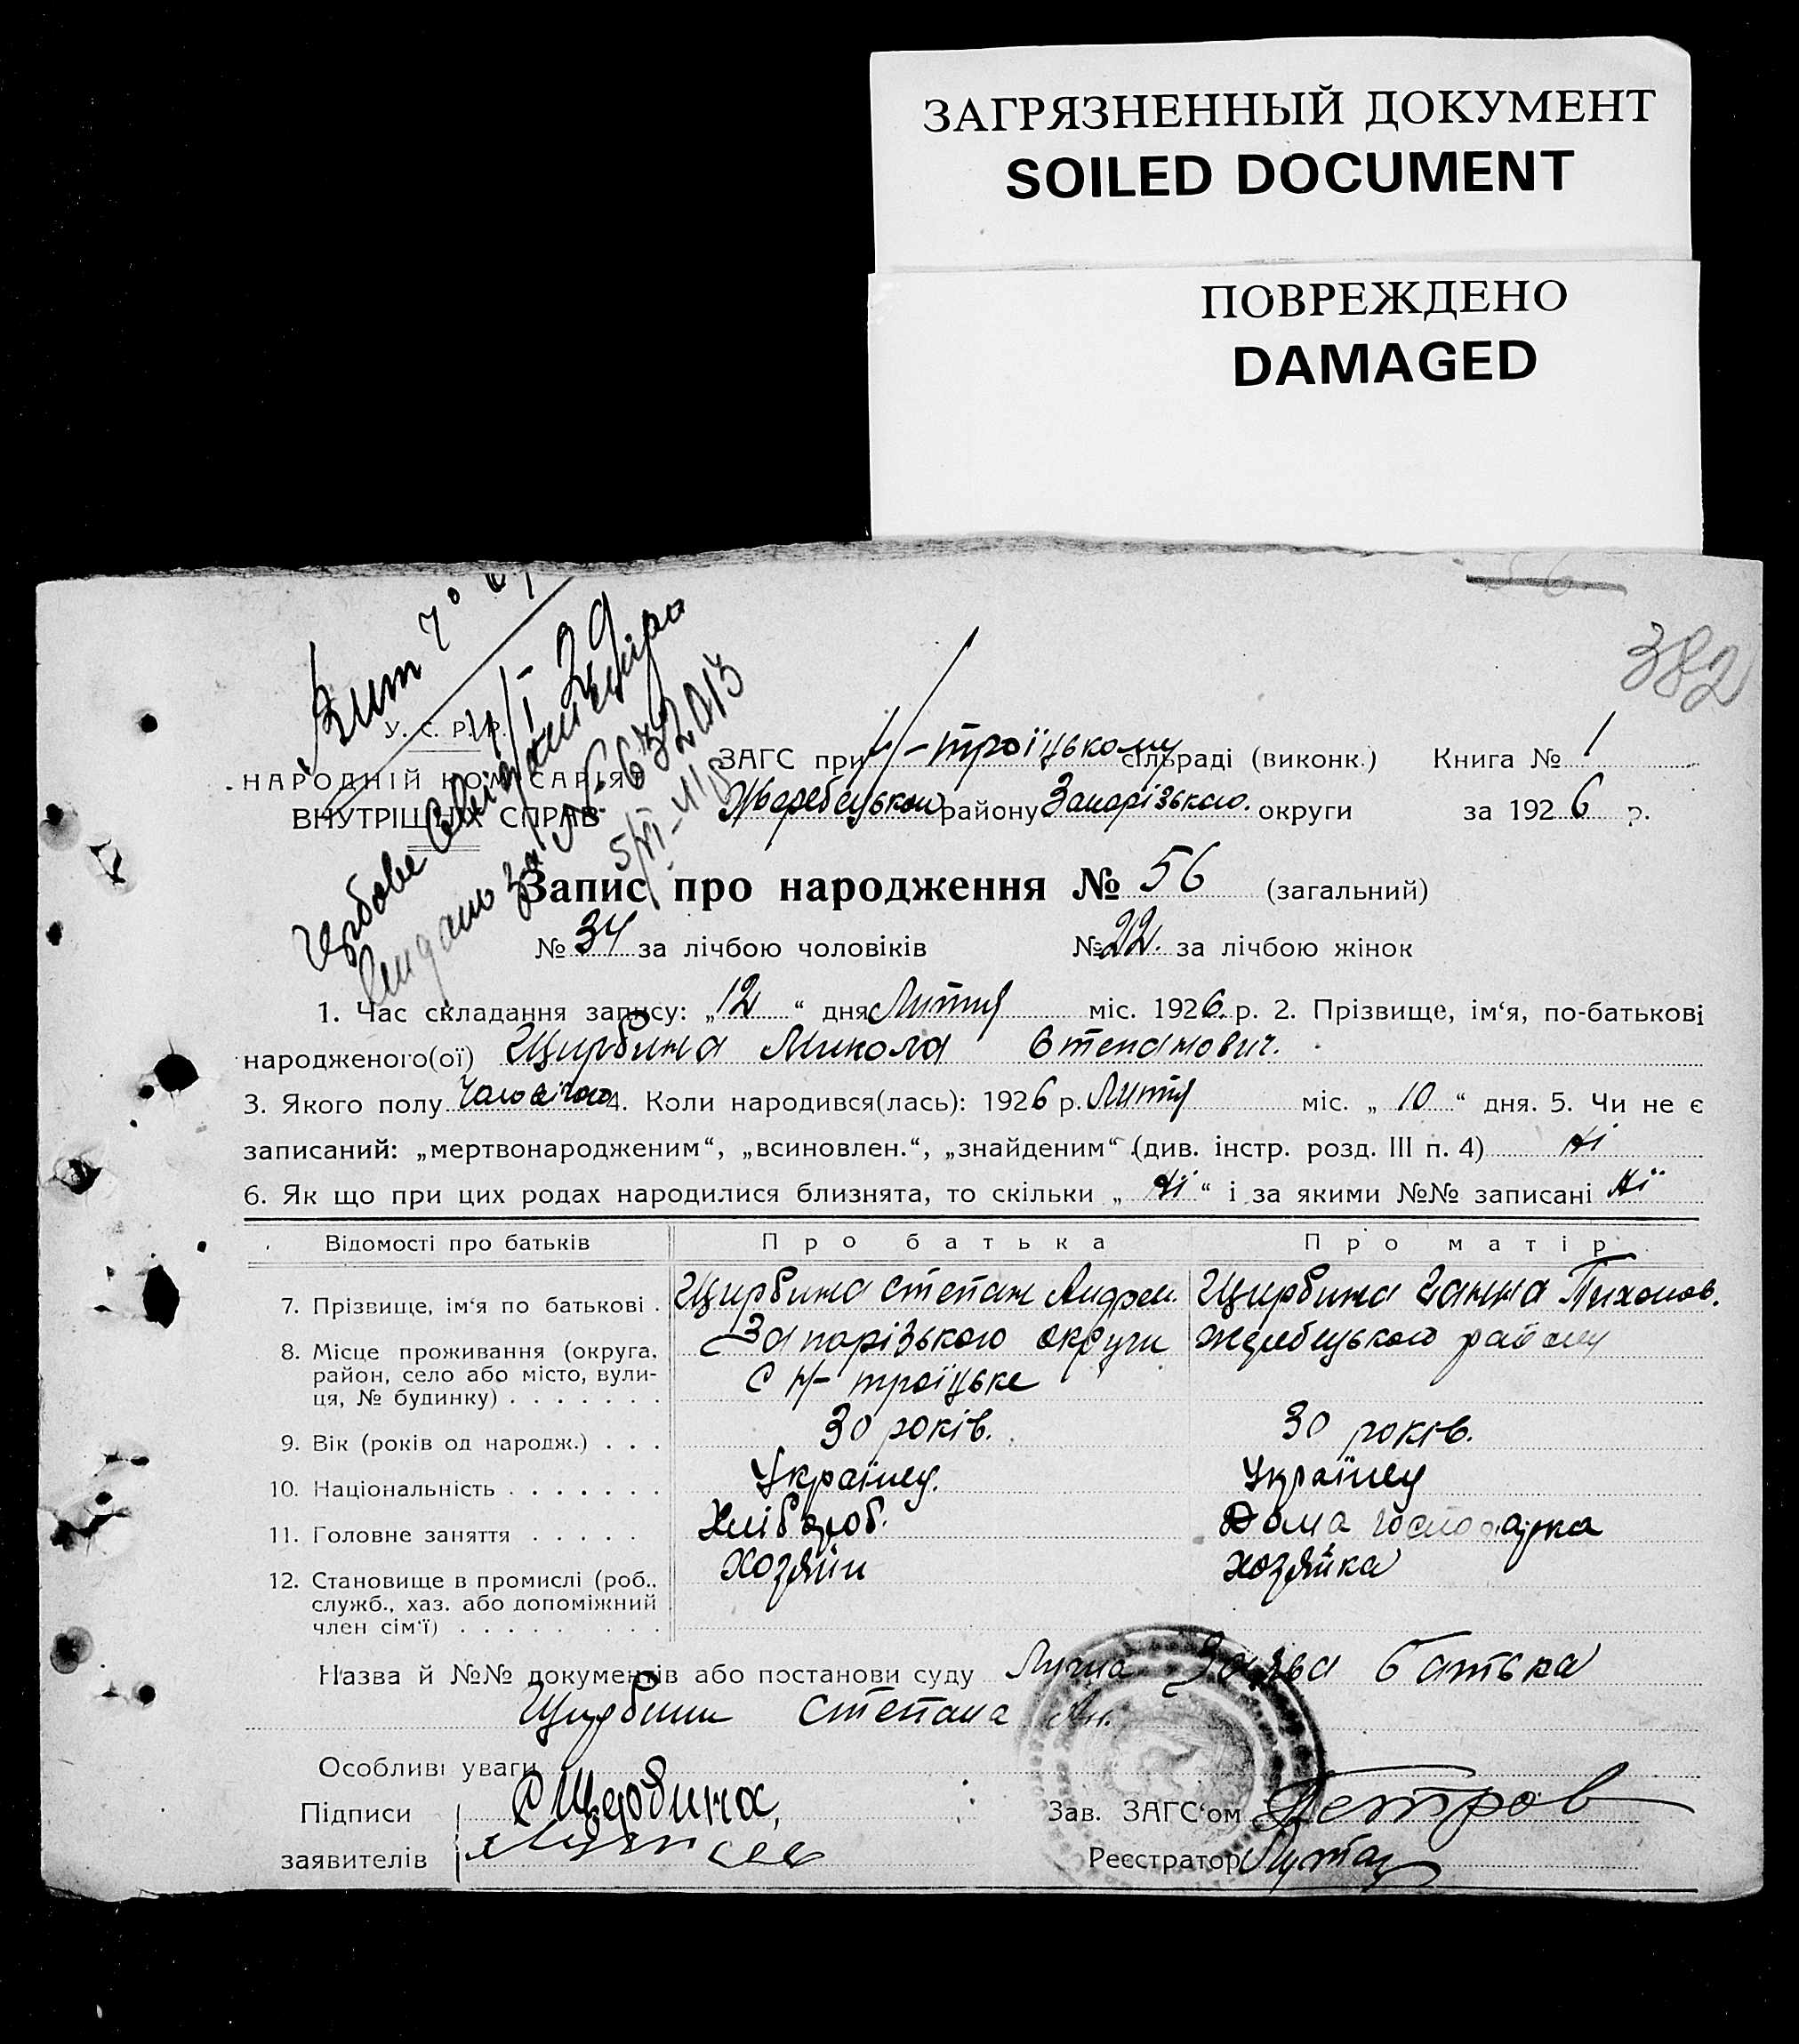 ЗАГРЯЗНЕННЫЙ ДОКУМЕНТ
SOILED DOCUMENT
ПОВРЕЖДЕНО
DAMAGED
56
382
У. С. Р. Р.
НАРОДНІЙ КОМІСАРІЯТ
ВНУТРІШНІХ СПРАВ
ЗАГС при Н-троїцькому сільраді (виконк.) Книга № 1
Жеребецького району Запорізького округи за 1926 р.
Запис про народження № 56 (загальний)
№ 34 за лічбою чоловіків № 22. за лічбою жінок
1. Час складання запису: „12“ дня Лютня міс. 1926 р. 2. Прізвище, ім‘я, по-батькові
народженого(ої) Щирбина Микола Степанович.
3. Якого полу 4. Коли народився(лась): 1926 р. Лютня міс. „10“ дня. 5. Чи не є
записаний: „мертвонародженим“, „всиновлен.“, „знайденим“ (див. інстр. розд. III п. 4) Ні
6. Як що при цих родах народилися близнята, то скільки „Ні“ і за якими №№ записані Ні
Відомості про батьків Про батька Про матір
7. Прізвище, ім‘я по батькові . Щирбина Степан Андрей. Щирбина Ганна Тихонов.
8. Місце проживання (округа, район, село або місто, вулиця, № будинку) Запорізького округи Жеребецького району
С Н-троїцьке
9. Вік (років од народж.) . . . 30 років. 30 років.
10. Національність . . . . . . . Українец. Українец
11. Головне заняття . . . . . Хлібороб. Дома господарка
12. Становище в промислі (роб., служб., хаз. або допоміжний член сім‘ї) Хозяйн хозяйка
Назва й №№ документів або постанови суду Лична Заява батька
Щирбини Степана Ан.
Особливі уваги
Підписи С Щербина, Зав. ЗАГС‘ом Петров
заявителів Реєстратор